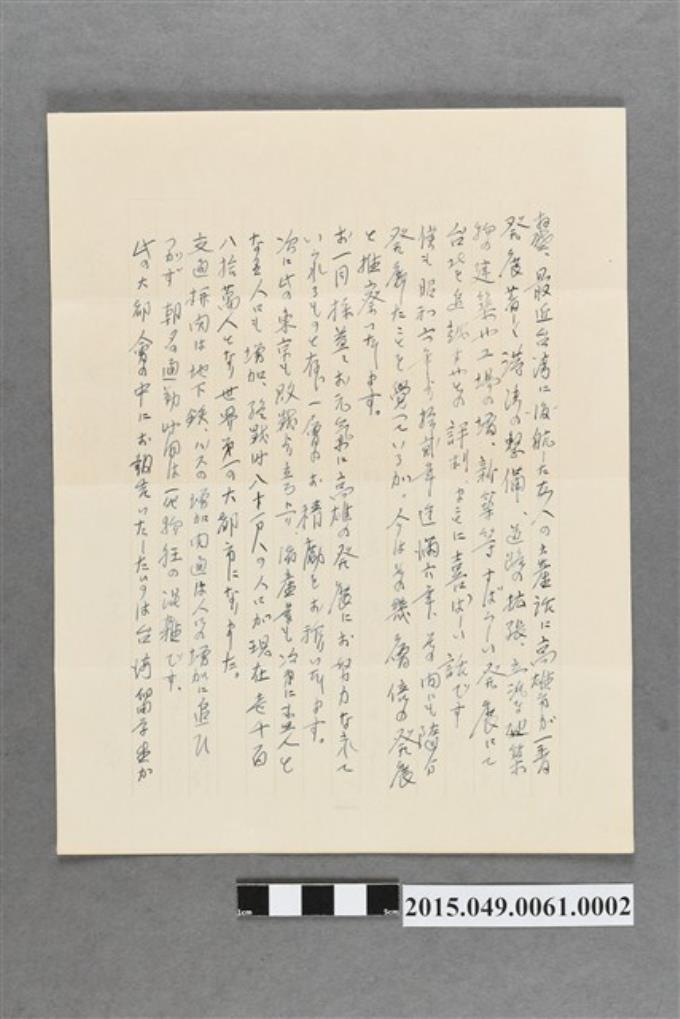 最近台湾に渡航した友人の土産話に高雄市が一番
発展著しく港湾の整備、道路の拡張、立派な建築
物の建築や工場の増、新築等すばらしい発展にて
台北を追越すやとの評判、まことに喜ばしい話です
僕も昭和六年より拾貳年迄満六年、その間にも随分
発展したことを覚っているが、今はその幾層倍の発展
と推察っております。
お一同様益々お元気に高雄の発展にお努力なされて
いられるものと存じ一層のお精励をお祈りいたします。
次に此の東京も敗戦より立ち上り、漁産業も次第に盛んと
なり人口も増加、終戦時八十万人の人口が現在壱千百
八拾萬人となり世界第一の大都市になりました。
交通機関は地下鉄、バスの増加開通は人口の増加に追ひ
つかず朝夕の通勤時間は死物狂の混雑です、
此の大都會の中にお報告いたしたいのは台湾留学生が
1cm
5cm
2015.049.0061.0002